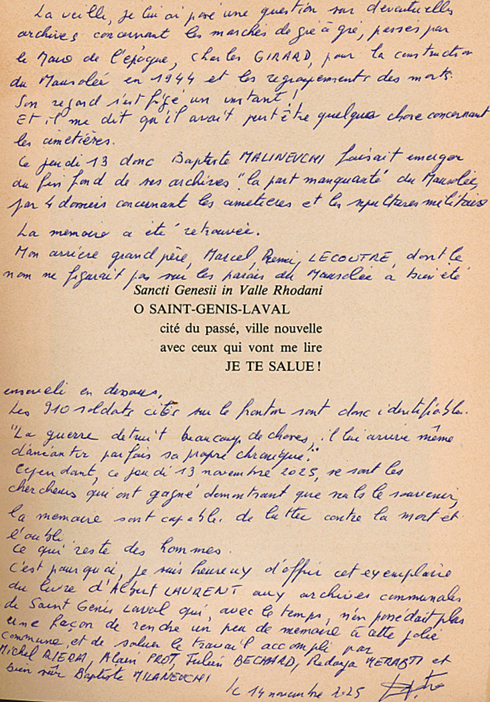 La veille, je lui ai posé une question sur d'éventuelles
archives concernant les marchés de gré à gré, passés par
le Maire de l'époque, Charles GIRARD, pour la construction
du Mausolée en 1944 et les regroupements des morts.
Son regard s'est figé un instant!
Et il me dit qu'il avait peut être quelque chose concernant
les cimetières.
Ce jeudi 13 donc Baptiste faisait emerger
du fin fond de ses archives "la part manquante" du Mausolée,
par 4 dossiers concernant les cimetières et les sépultures militaires
La memoire a été retrouvée.
Mon arrière grand père, Marcel, Remi, LECOUTRE, dont le
nom ne figurait pas sur les parois du Mausolée a bien été
Sancti Genesii in Valle Rhodani
O SAINT-GENIS-LAVAL
cité du passé, ville nouvelle
avec ceux qui vont me lire
JE TE SALUE !
enseveli en dessous,
Les 910 soldats cités sur le fronton sont donc identifiables.
"La guerre détruit beaucoup de choses, il lui arrive même
d'anéantir parfois sa propre chronique."
Cependant, ce jeudi 13 novembre 2025, ce sont les
chercheurs qui ont gagné démontrant que seuls le souvenir,
la mémoire sont capables de lutter contre la mort et
l'oubli.
Ce qui reste des hommes.
C'est pourquoi, je suis heureux d'offrir cet exemplaire
du livre d'Albert LAURENT aux archives communales
de Saint Genis Laval qui, avec le temps, n'en possédait plus
une façon de rendre un peu de mémoire à cette jolie
commune, et de saluer le travail accompli par
Michel RIERA, Alain PROT, Julien BECHARD, et
bien sûr Baptiste
le 14 novembre 2025